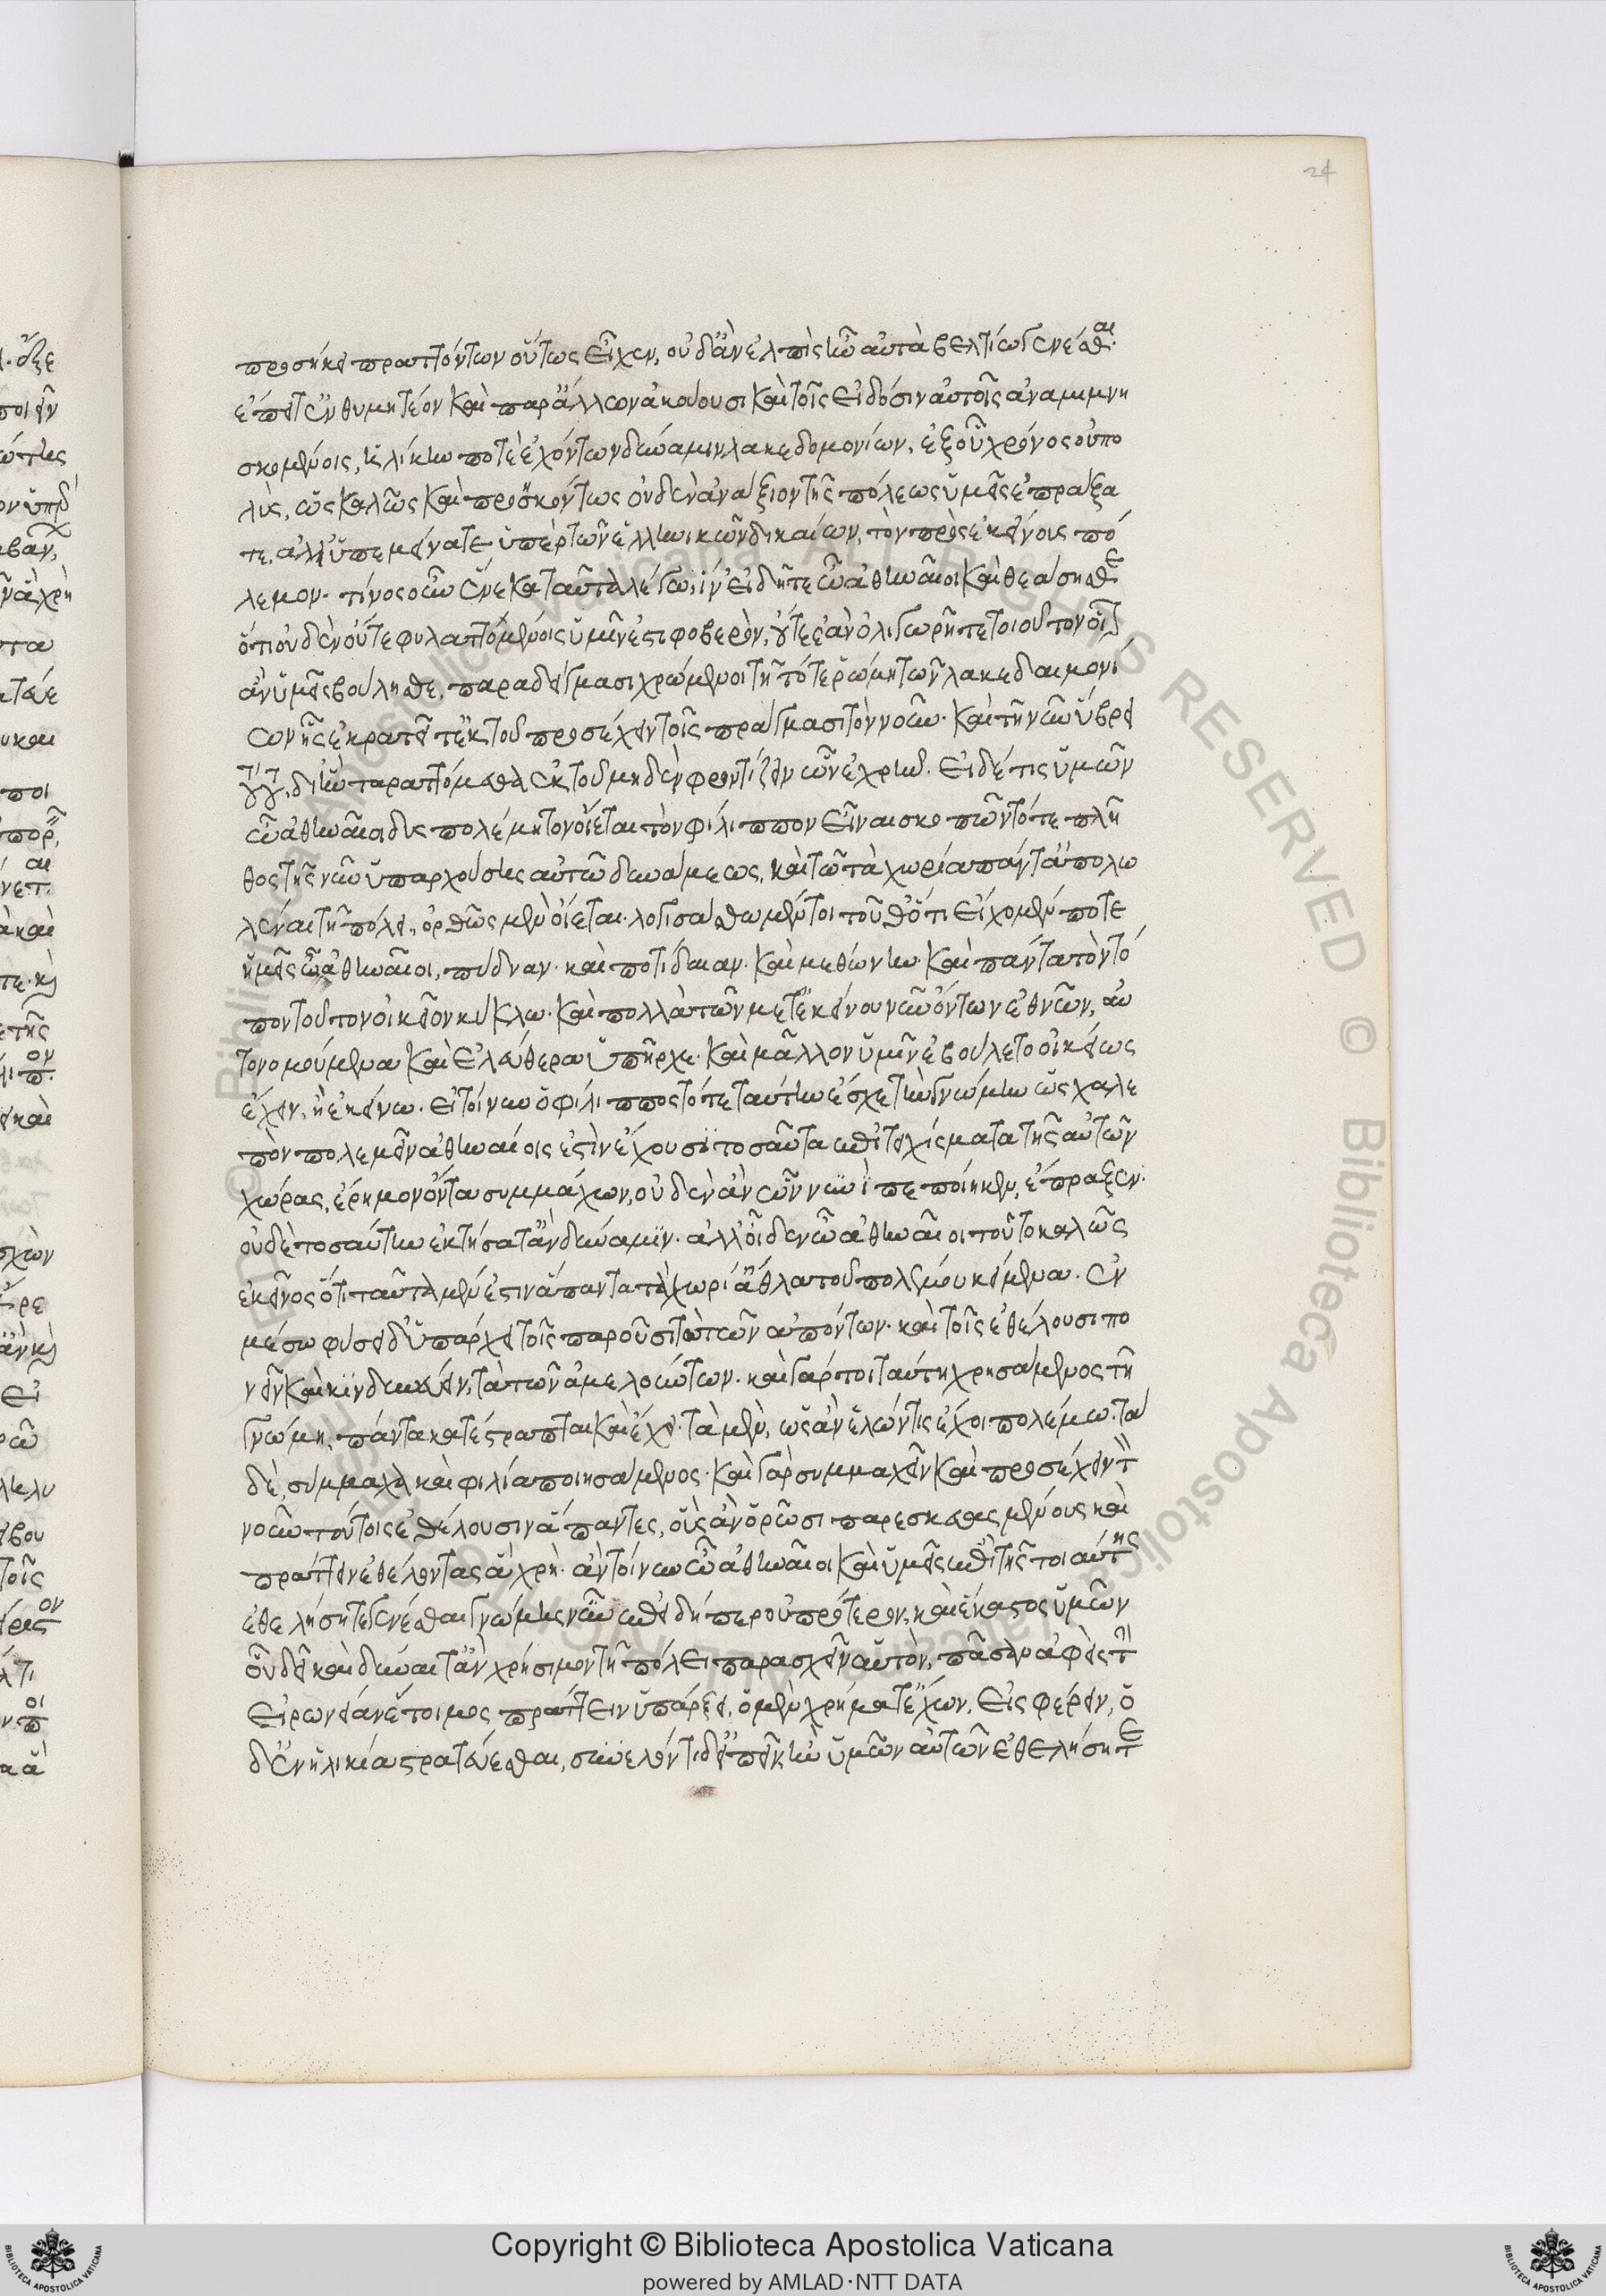 24
προσῆκε πραττόντων οὕτως εἶχεν, οὐδ' ἂν ἐλπὶς ἦν αὐτὰ βελτίω γενέσθαι.
ἔπειτ' ἐνθυμητέον καὶ παρ' ἄλλων ἀκούουσι καὶ τοῖς εἰδόσιν αὐτοῖς ἀναμιμνη
σκομένοις, ἡλίκην ποτὲ ἐχόντων δύναμιν λακεδομονίων, ἐξ οὗ χρόνος οὐ πο
λὺς, ὡς καλῶς καὶ προσηκόντως οὐδὲν ἀνάξιον τῆς πόλεως ὑμεῖς ἐπράξα
τε, ἀλλ' ὑπεμείνατε ὑπὲρ τῶν ἑλληνικῶν δικαίων, τὸν πρὸς ἐκείνοις πό
λεμον. τίνος οὖν ἕνεκα ταῦτα λέγω; ἵν' εἰδῆτε ὦ ἀθηναῖοι καὶ θεάσησθε
ὅτι οὐδὲν οὔτε φυλαττομένοις ὑμῖν ἐστι φοβερὸν, οὔτε ἐὰν ὀλιγωρῆτε τοιοῦτον οἷον
ἂν ὑμεῖς βούλησθε, παραδείγμασι χρώμενοι τῇ τότε ῥώμῃ τῶν λακεδαιμονί
ων ἧς ἐκρατεῖτε ἐκ τοῦ προσέχειν τοῖς πράγμασι τὸν νοῦν. καὶ τῇ νῦν ὕβρει
τούτου, δι' ἣν ταραττόμεθα ἐκ τοῦ μηδὲν φροντίζειν ὧν ἐχρῆν. εἰ δέ τις ὑμῶν
ὦ ἀθηναῖοι δυσπολέμητον οἴεται τὸν φίλιππον εἶναι σκοπῶν τό τε πλῆ
θος τῆς νῦν ὑπαρχούσης αὐτῶ δυνάμεως, καὶ τῶ τὰ χωρία πάντα ἀπολω
λέναι τῇ πόλει, ὀρθῶς μὲν οἴεται. λογισάσθω μέντοι τοῦθ' ὅτι εἴχομέν ποτε
ἡμεῖς ὦ ἀθηναῖοι, πύδναν. καὶ ποτίδαιαν. καὶ μεθώνην. καὶ πάντα τὸν τό
πον τοῦτον οἰκεῖον κύκλω. καὶ πολλὰ τῶν μετ' ἐκείνου νῦν ὄντων ἐθνῶν, αὐ
τονομούμενα καὶ ἐλεύθερα ὑπῆρχε. καὶ μᾶλλον ὑμῖν ἐβούλετο οἰκείως
ἔχειν, ἢ ἐκείνω. εἰ τοίνυν ὁ φίλιππος τότε ταύτην ἔσχε τὴν γνώμην ὡς χαλε
πὸν πολεμεῖν ἀθηναίοις ἐστὶν ἔχουσι τοσαῦτα ἐπιτειχίσματα τῆς αὐτῶν
χώρας, ἔρημον ὄντα συμμάχων, οὐδὲν ἂν ὧν νυνὶ πεποίηκεν, ἔπραξεν.
οὐδὲ τοσαύτην ἐκτήσατ' ἂν δύναμιν. ἀλλ' οἶδεν ὦ ἀθηναῖοι τοῦτο καλῶς
ἐκεῖνος ὅτι ταῦτα μέν ἐστιν ἅπαντα τὰ χωρία ἆθλα τοῦ πολέμου κείμενα. ἐν
μέσω φύσει δ' ὑπάρχει τοῖς παροῦσι τὰ τῶν ἀπόντων. καὶ τοῖς ἐθέλουσι πο
νεῖν καὶ κινδυνεύειν, τὰ τῶν ἀμελούντων. καὶ γάρ τοι ταύτῃ χρησάμενος τῇ
γνώμῃ, πάντα κατέστραπται καὶ ἔχει. τὰ μὲν, ὡς ἂν ἑλών τις ἔχοι πολέμω. τὰ
δὲ, σύμμαχα καὶ φίλια ποιησάμενος. καὶ γὰρ συμμαχεῖν καὶ προσέχειν τὸν
νοῦν τούτοις ἐθέλουσιν ἅπαντες, οὓς ἂν ὁρῶσι παρεσκευασμένους καὶ
πράττειν ἐθέλοντας ἃ χρή. ἂν τοίνυν ὦ ἀθηναῖοι καὶ ὑμεῖς ἐπὶ τῆς τοιαύτης
ἐθελήσητε γενέσθαι γνώμης νῦν ἐπειδήπερ οὐ πρότερον, καὶ ἕκαστος ὑμῶν
οὗ δεῖ καὶ δύναιτ' ἂν χρήσιμον τῇ πόλει παρασχεῖν αὑτὸν, πᾶσαν ἀφεὶς τὴν
εἰρωνείαν ἕτοιμος πράττειν ὑπάρξει, ὁ μὲν χρήματα ἔχων, εἰσφέρειν, ὁ
δ' ἐν ἡλικία στρατεύεσθαι, συνελόντι δ' εἰπεῖν ἢν ὑμῶν αὐτῶν ἐθελήσητε
Copyright © Biblioteca Apostolica Vaticana
powered by AMLAD·NTT DATA